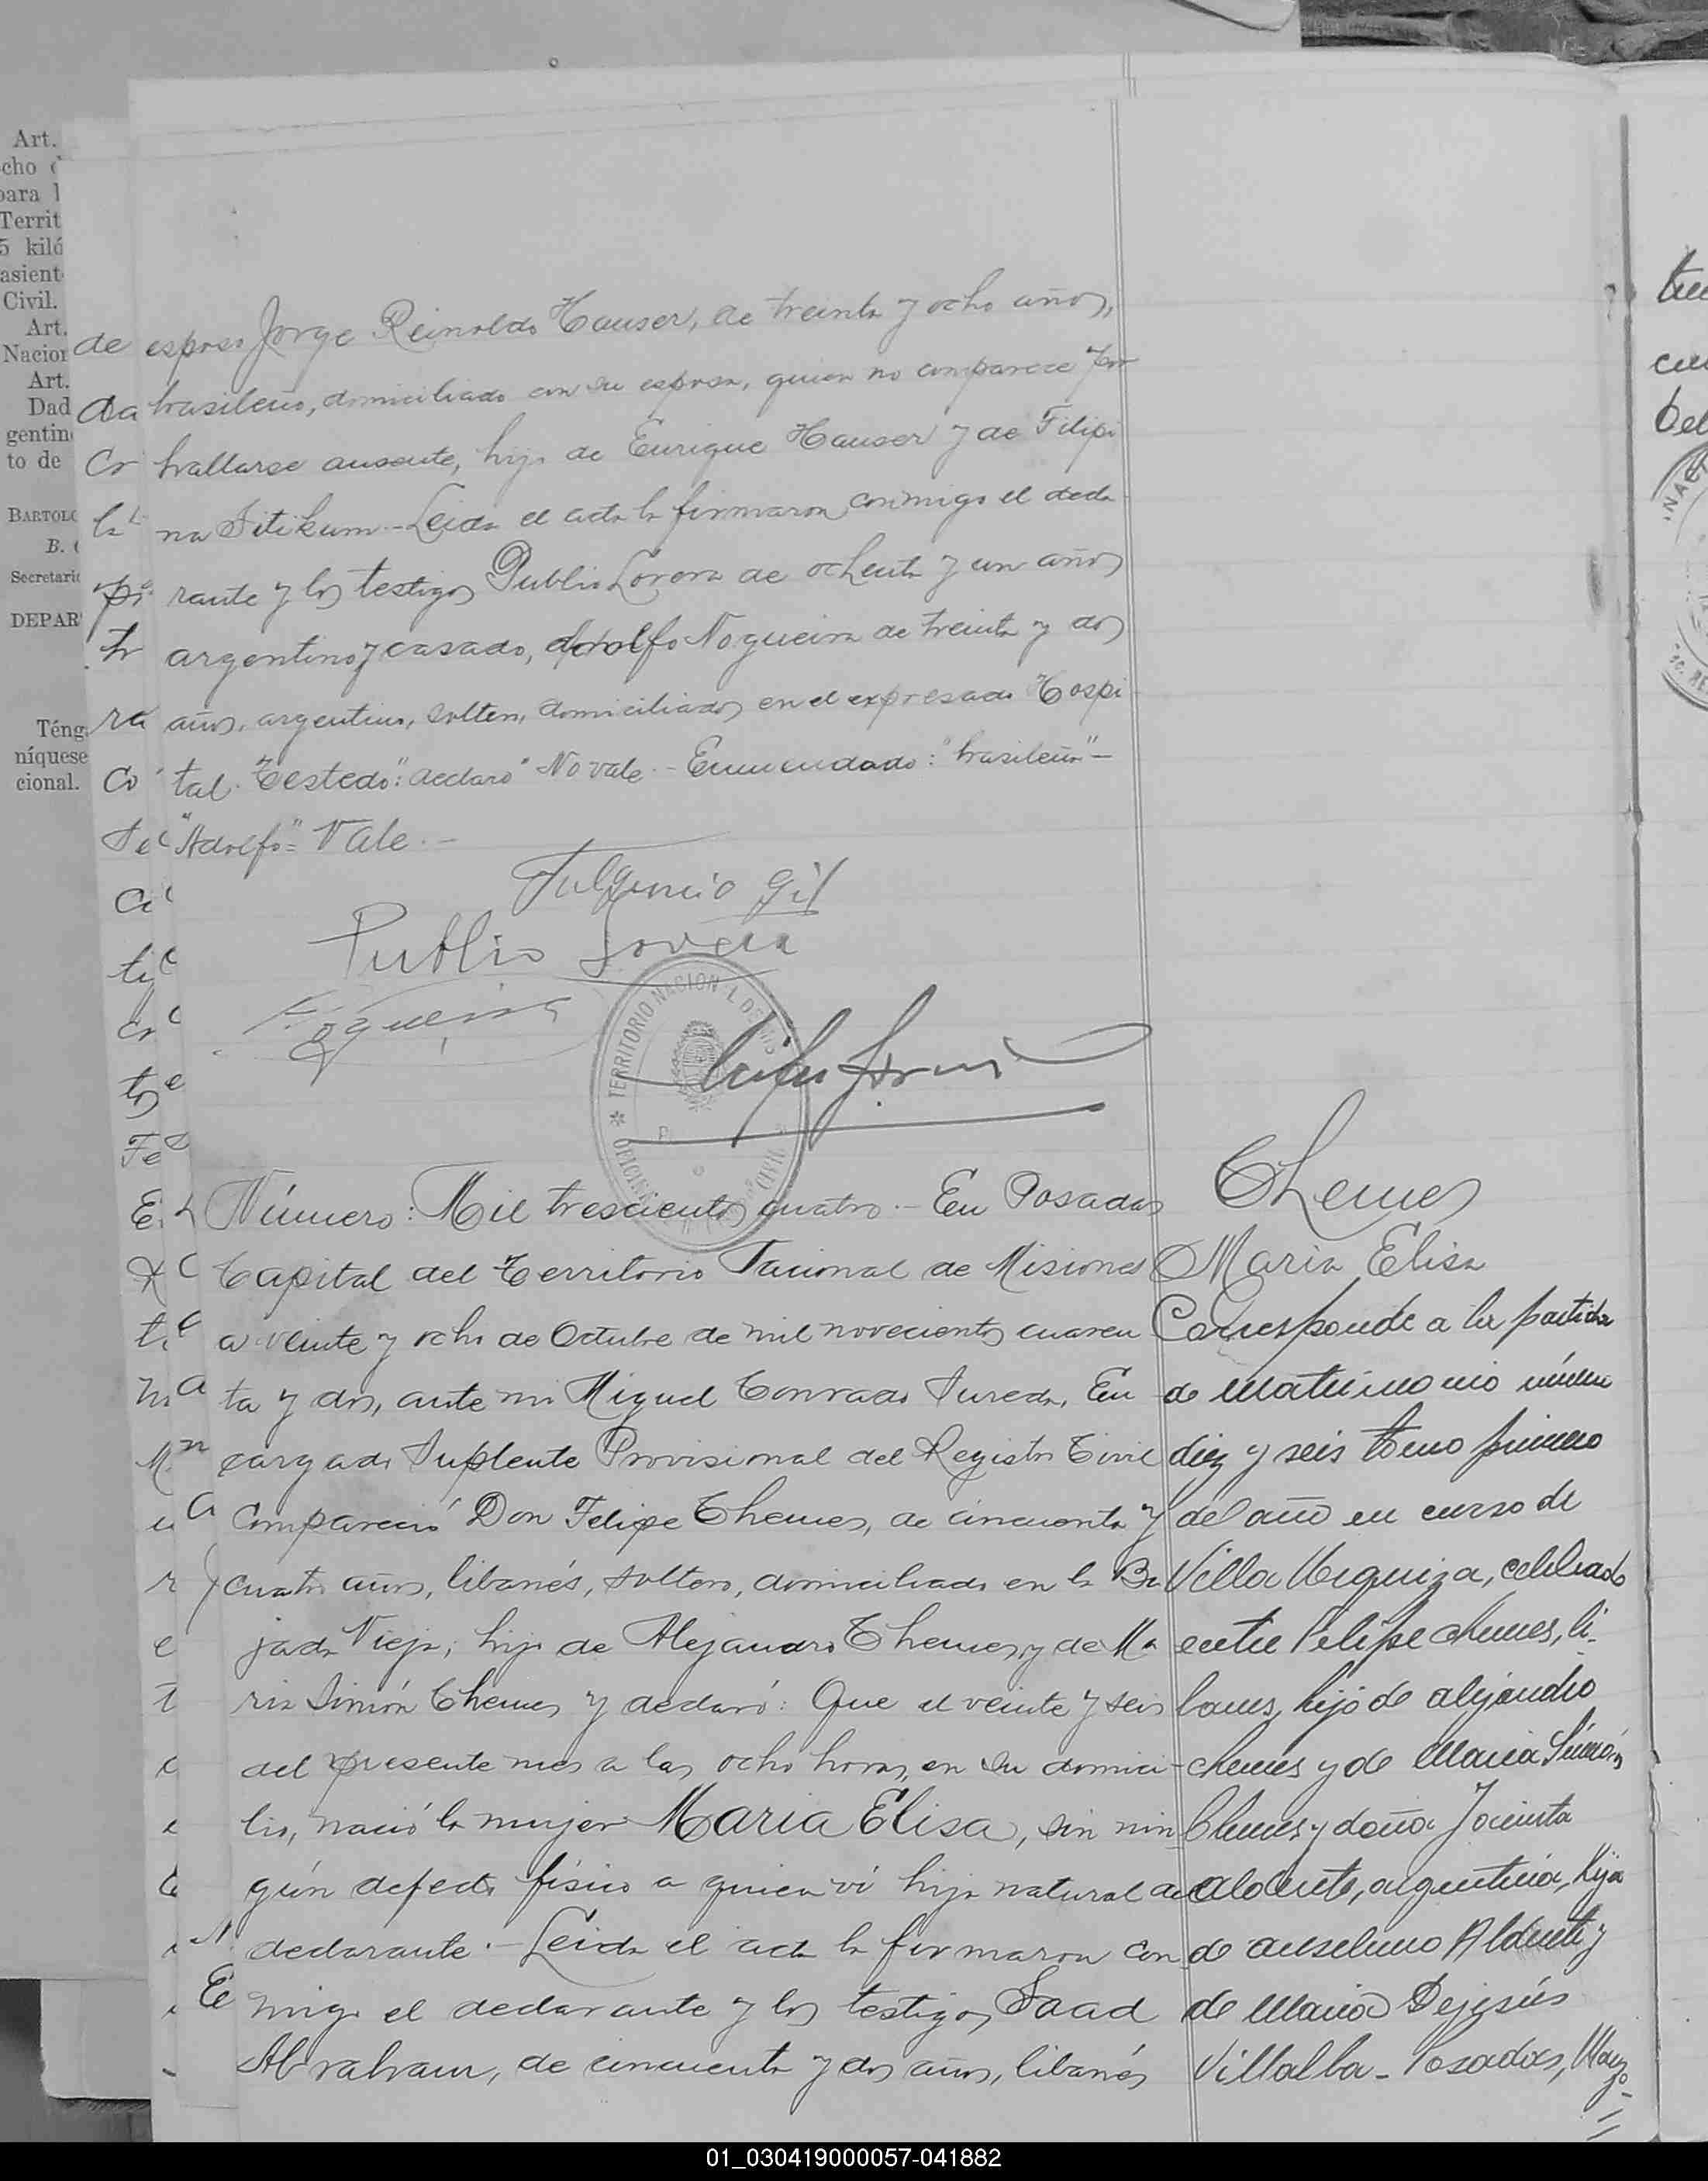 Art.
cho
para
Territ
5 kiló
asient
Civil.
Art.
Nacion
Art.
Dad
gentin
to de
BARTOLO
B.
Secretario
DEPAR
Téng
níquese
cional.
de esposo Jorge Reinoldo Hauser, de treinta y ocho años,
brasileño, domiciliado con su esposa, quien no comparece por
hallarse ausente, hijo de Enrique Hauser y de Filipi
na Sitikum - Leida el acta la firmaron conmigo el decla
rante y los testigos Publio Lovera de ochenta y un años
argentino y casado, Adolfo Nogueira de treinta y dos
años, argentino, soltero, domiciliados en el expresado Hospi
tal. Testado: "declaró" No vale - Enmendado: "brasileño" -
"Adolfo" = Vale. -
Fulgencio Gil
Publio Lovera
Nogueira
TERRITORIO NACIONAL DE MIS
Número: Mil trescientos cuatro. - En Posadas
Capital del Territorio Nacional de Misiones
a veinte y ocho de Octubre de mil novecientos cuaren
ta y dos, ante mi Miguel Conrado Sureda, En
cargado Suplente Provisional del Registro Civil
Compareció Don Felipe Chemes, de cincuenta y
cuatro años, libanés, soltero, domiciliado en la Ba
jada Vieja, hijo de Alejandro Chemes y de Ma
ria Simón Chemes y declaró: Que el veinte y seis
del presente mes a las ocho horas, en su domici-
lio, nació la mujer Maria Elisa, sin nin
gún defecto físico a quien vi hija natural del
declarante. - Leida el acta la firmaron con
migo el declarante y los testigos Saad
Abraham, de cincuenta y dos años, libanés
Chemes
Maria Elisa
Corresponde a la partida
de matrimonio número
diez y seis tomo primero
del año en curso de
Villa Urquiza, celebrado
entre Felipe Chemes, li-
banes, hijo de Alejandro
Chemes y de Maria Simón
Chemes y doña Jacinta
Alderete, argentina, hija
de Anselmo Alderete y
de Maria Dejesús
Villalba - Posadas, Mayo
01_030419000057-041882